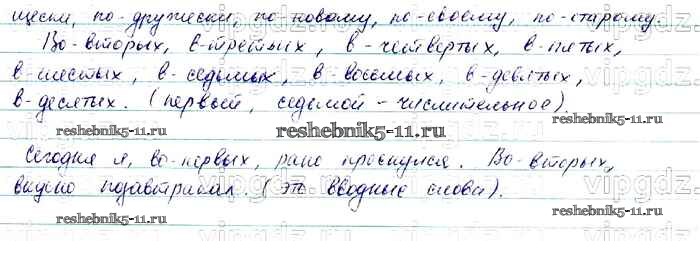 щески, по-дружески, по-новому, по-своему, по-старому.
Во-вторых, в-третьих, в-четвертых, в-пятых,
в-шестых, в-седьмых, в-восьмых, в-девятых,
в-десятых. (первый, седьмой - числительное).
reshebnik5-11.ru
reshebnik5-11.ru
Сегодня я, во-первых, рано проснулся. Во-вторых,
вкусно позавтракал. (это вводные слова).
reshebnik5-11.ru
reshebnik5-11.ru